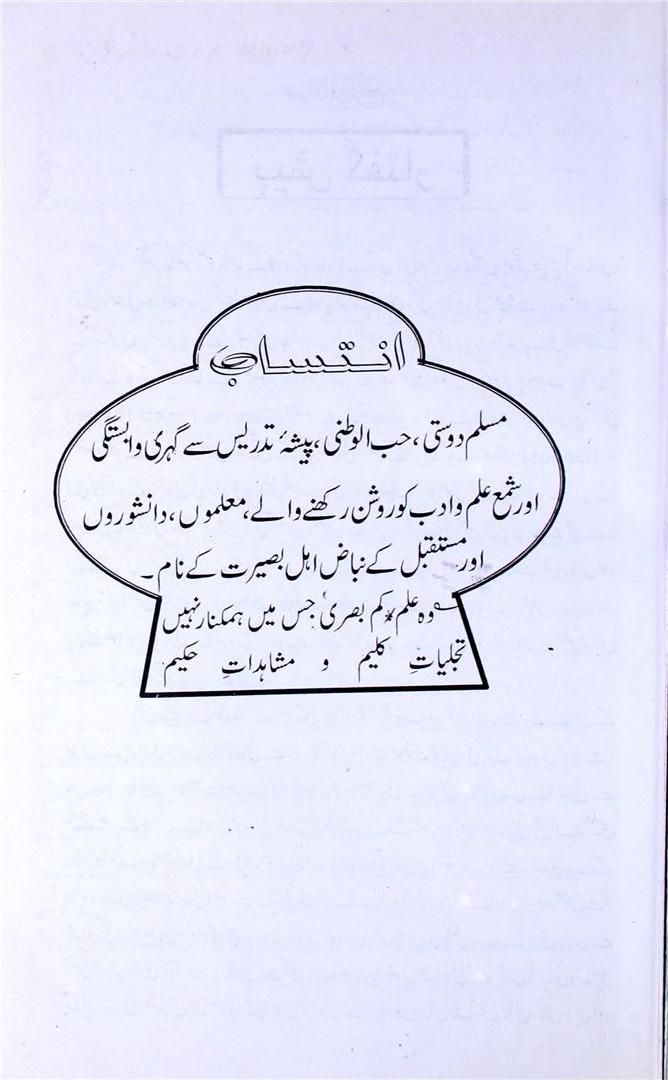 انتساب
مسلم دوستی، حب الوطنی، پیشۂ تدریس سے گہری وابستگی
اور شمع علم و ادب کو روشن رکھنے والے، معلموں، دانشوروں
اور مستقبل کے نباض اہل بصیرت کے نام۔
؎ وہ علم، کم بصری جس میں ہمکنار نہیں
تجلیاتِ کلیم و مشاہداتِ حکیم